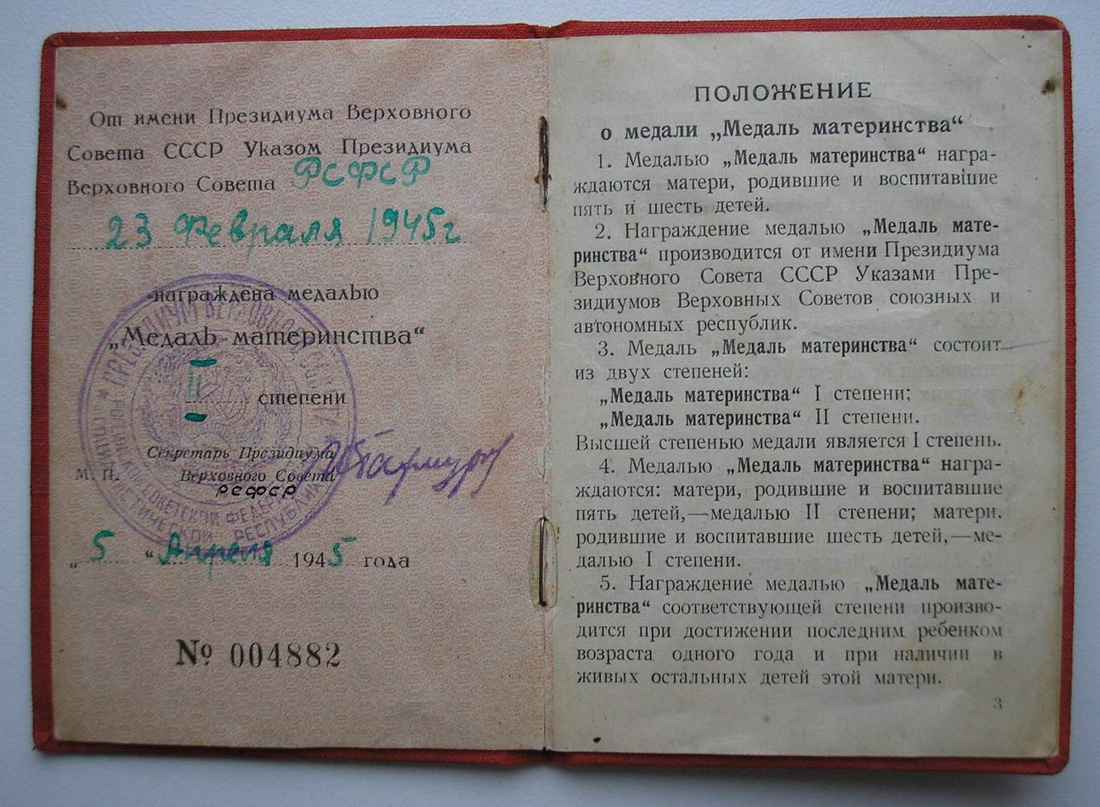 От имени Президиума Верховного
Совета СССР Указом Президиума
Верховного Совета РСФСР
23 Февраля 1945г
награждена медалью
„Медаль материнства“
II степени
Секретарь Президиума
М. П. Верховного Совета
РСФСР
„5“ Апреля 1945 года
№ 004882
ПОЛОЖЕНИЕ
о медали „Медаль материнства“
1. Медалью „Медаль материнства“ награ-
ждаются матери, родившие и воспитавшие
пять и шесть детей.
2. Награждение медалью „Медаль мате-
ринства“ производится от имени Президиума
Верховного Совета СССР Указами Пре-
зидиумов Верховных Советов союзных и
автономных республик.
3. Медаль „Медаль материнства“ состоит
из двух степеней:
„Медаль материнства“ I степени;
„Медаль материнства“ II степени.
Высшей степенью медали является I степень.
4. Медалью „Медаль материнства“ награ-
ждаются: матери, родившие и воспитавшие
пять детей,—медалью II степени; матери.
родившие и воспитавшие шесть детей,—ме-
далью I степени.
5. Награждение медалью „Медаль мате-
ринства“ соответствующей степени произво-
дится при достижении последним ребенком
возраста одного года и при наличии в
живых остальных детей этой матери.
3